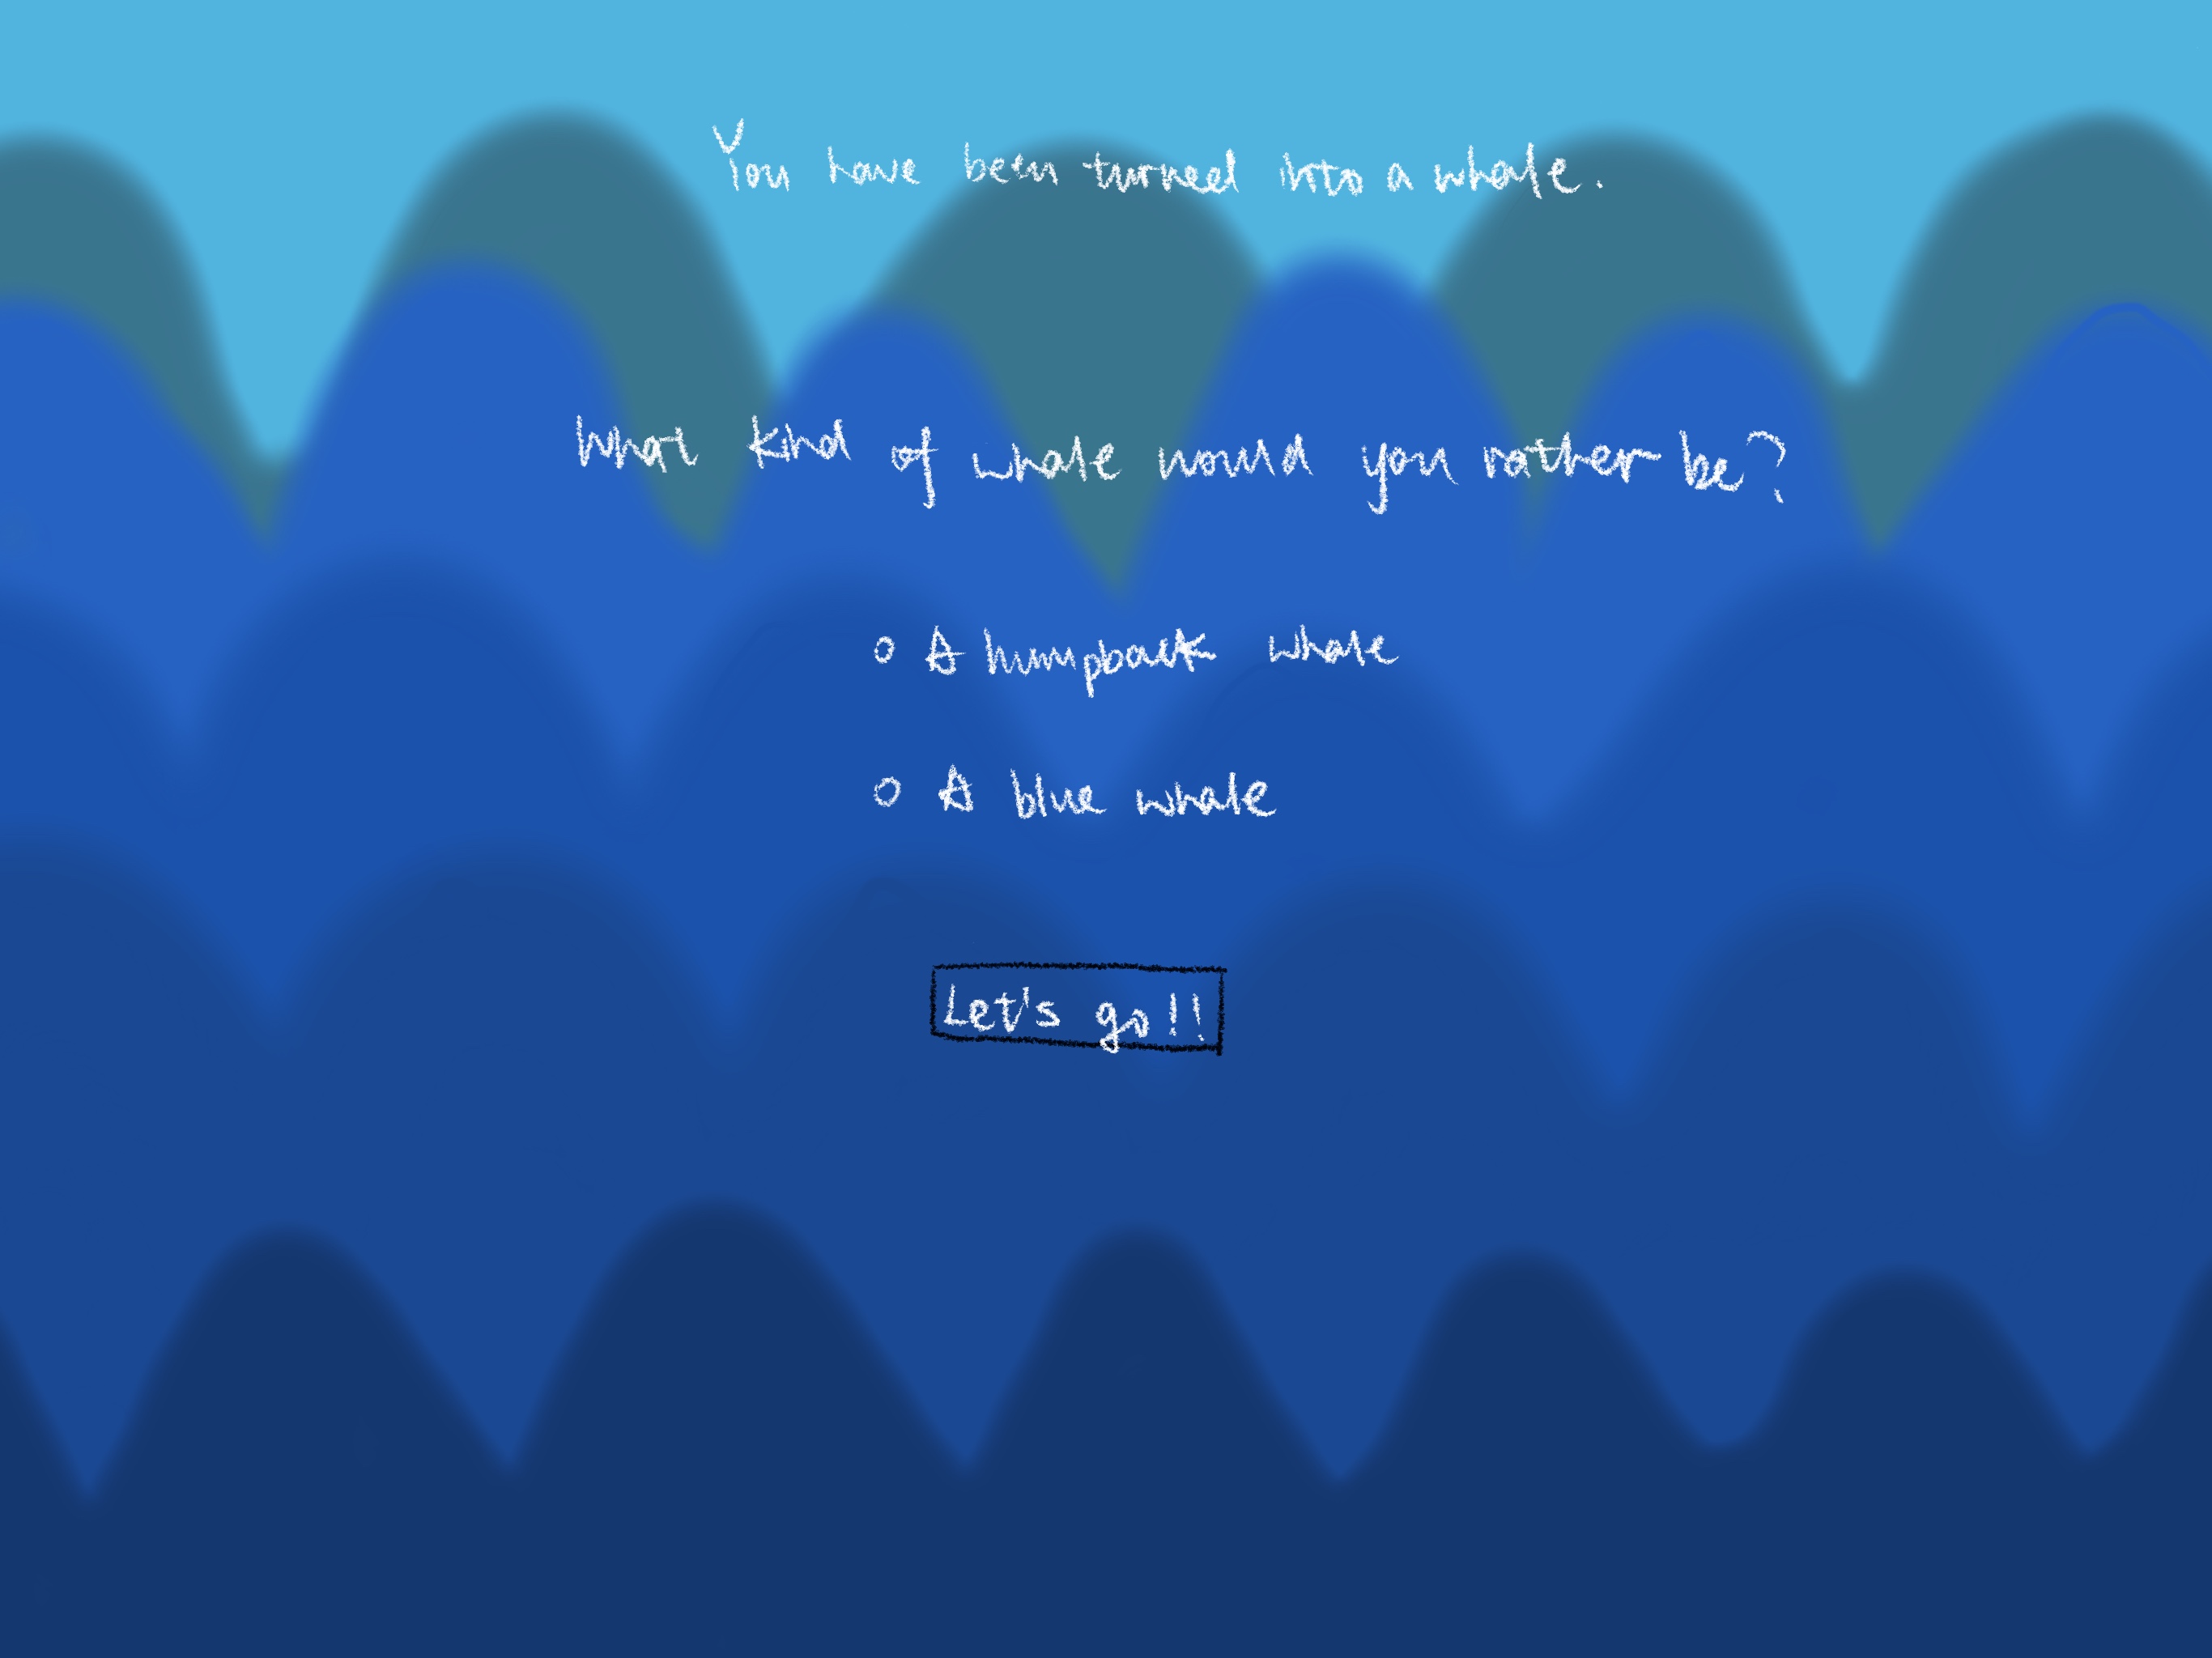 You have been turned into a whale.
What kind of whale would you rather be?
o A humpback whale
o A blue whale
Let's go!!